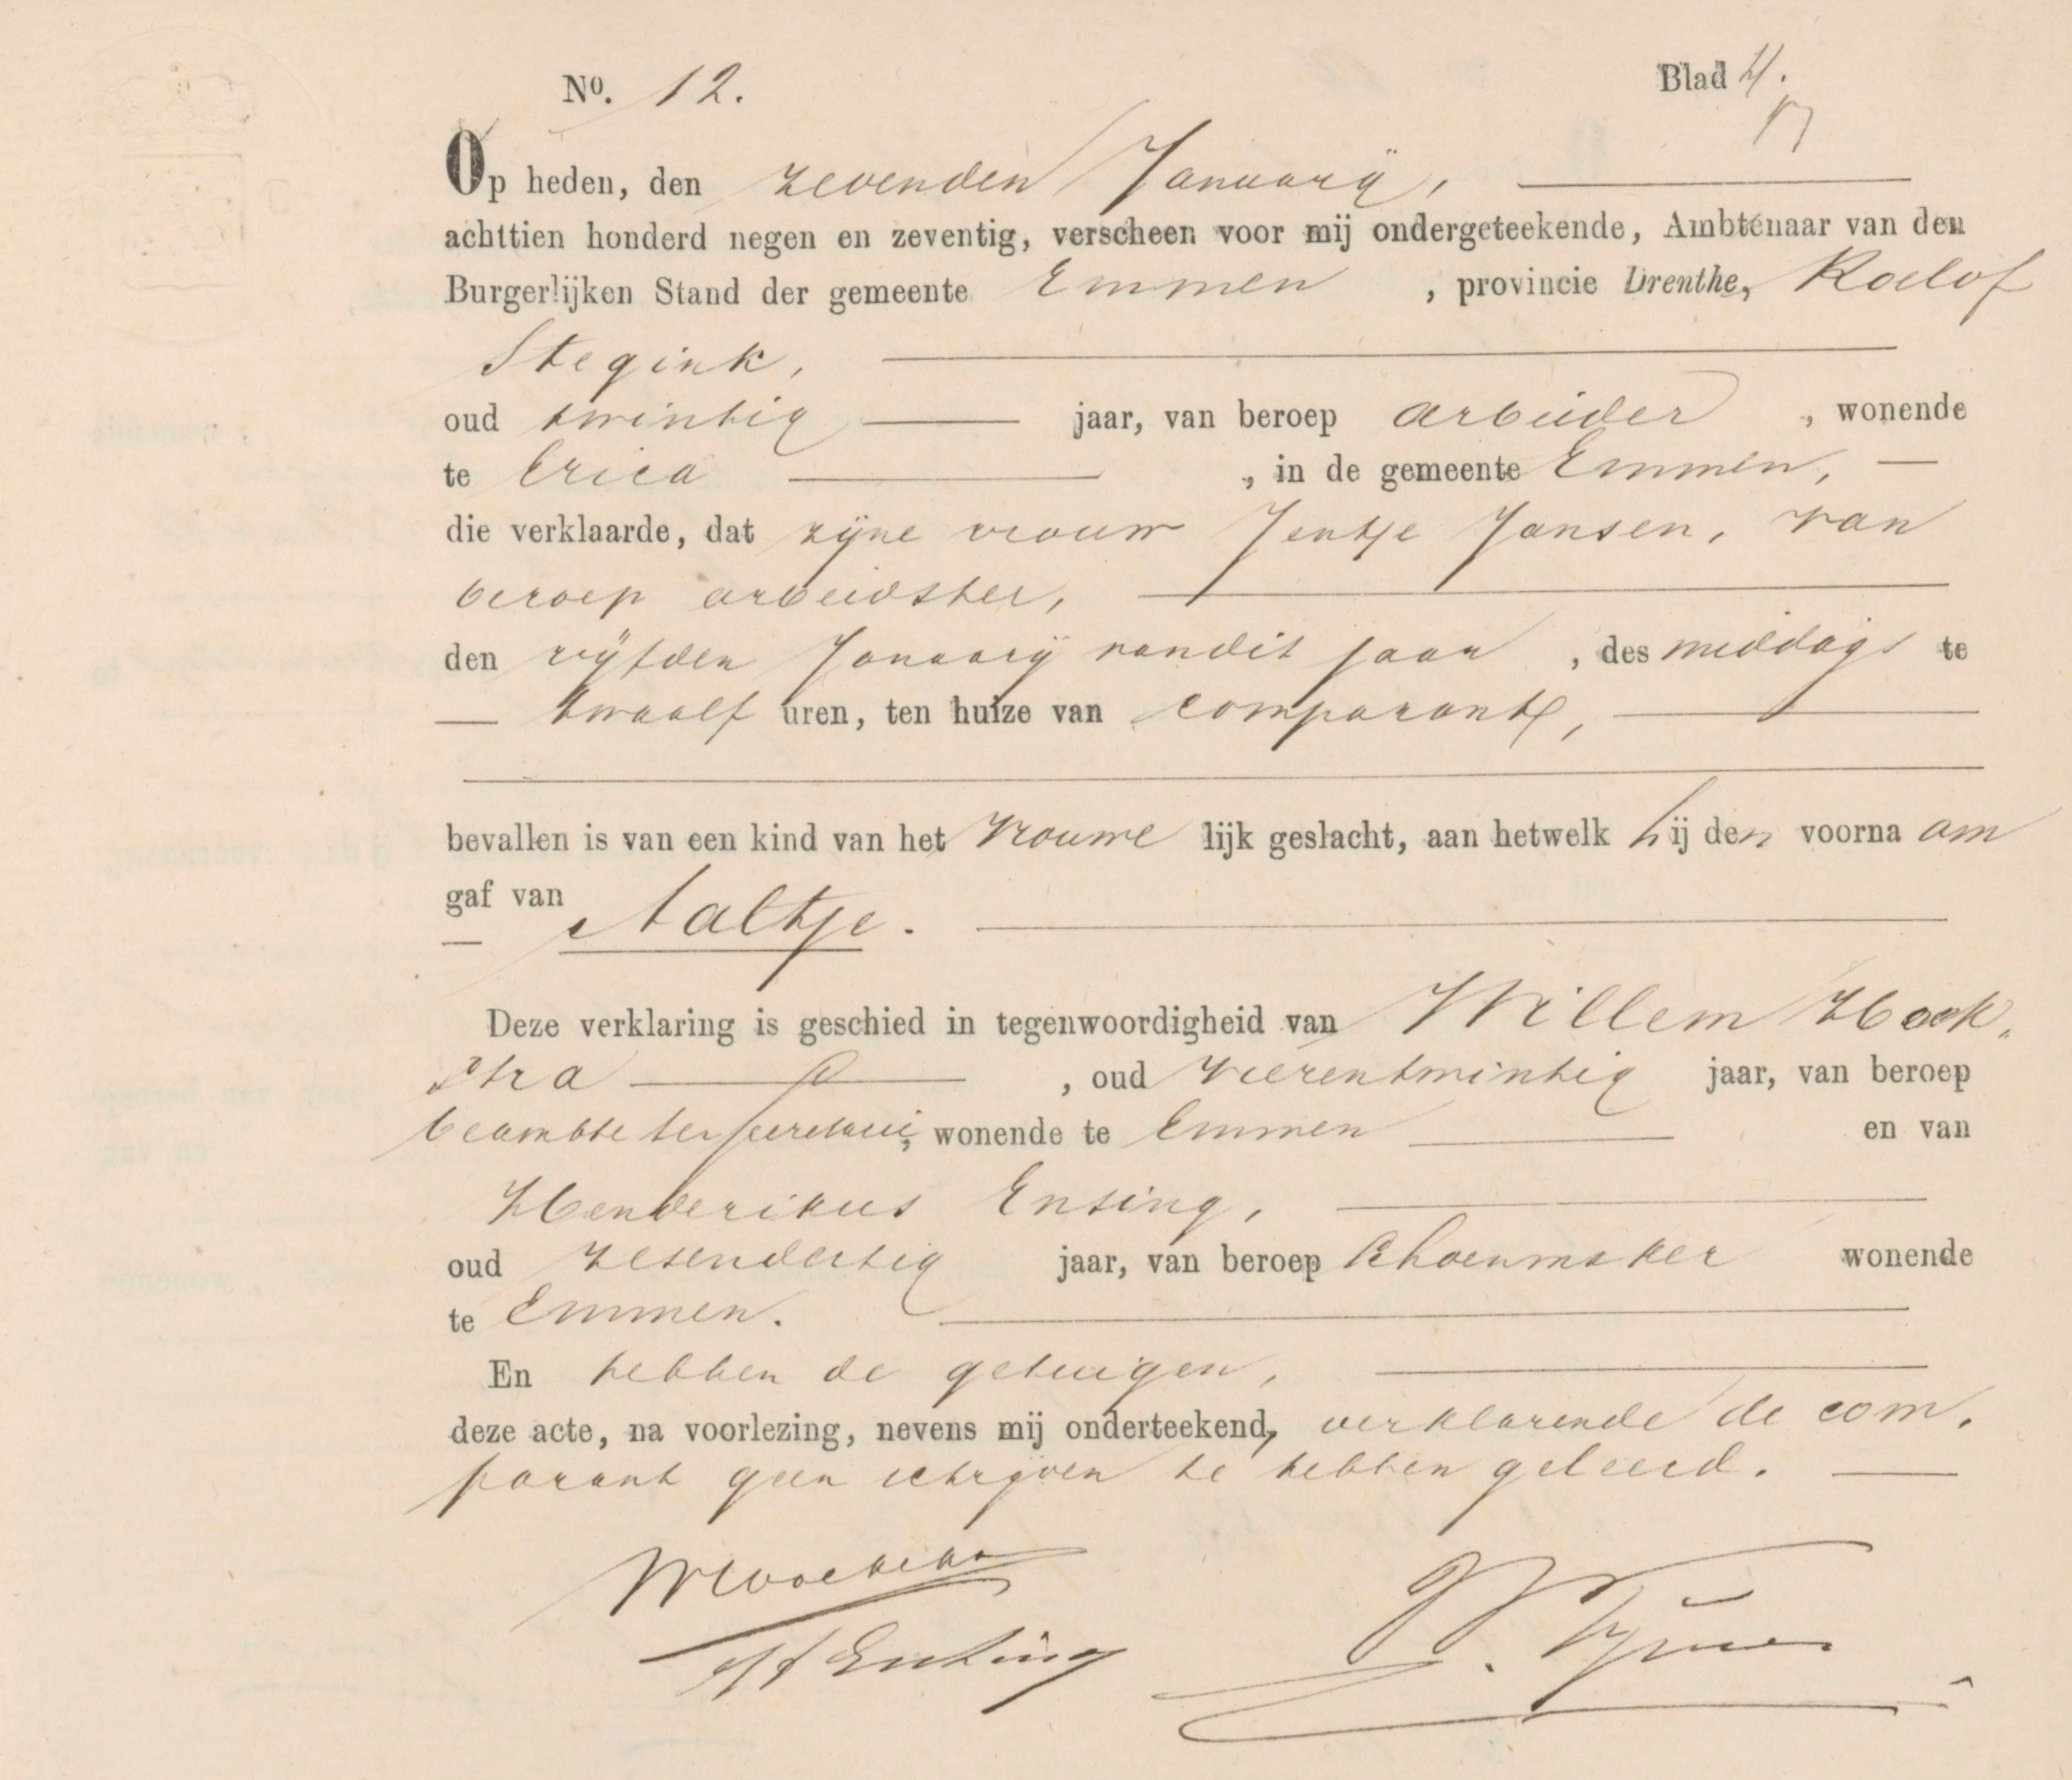 No. 12.
Blad 4.
Op heden, den zevenden Januarij,
achttien honderd negen en zeventig, verscheen voor mij ondergeteekende, Ambtenaar van den
Burgerlijken Stand der gemeente Emmen, provincie Drenthe, Roelof
Stegink,
oud twintig jaar, van beroep arbeider, wonende
te Erica, in de gemeente Emmen,
die verklaarde, dat zijne vrouw Jentje Jansen, van
beroep arbeidster,
den vijfden Januarij van dit jaar, des middags te
twaalf uren, ten huize van comparant,
bevallen is van een kind van het vrouwelijk geslacht, aan hetwelk hij den voornaam
gaf van Aaltje.
Deze verklaring is geschied in tegenwoordigheid van Willem Hoek-
stra, oud vierentwintig jaar, van beroep
beambte ter secretarie, wonende te Emmen en van
Henderikus Ensing,
oud zesendertig jaar, van beroep schoenmaker wonende
te Emmen.
En hebben de getuigen,
deze acte, na voorlezing, nevens mij onderteekend, verklarende de com-
parant geen schrijven te hebben geleerd.
WHoekstra
H Ensing